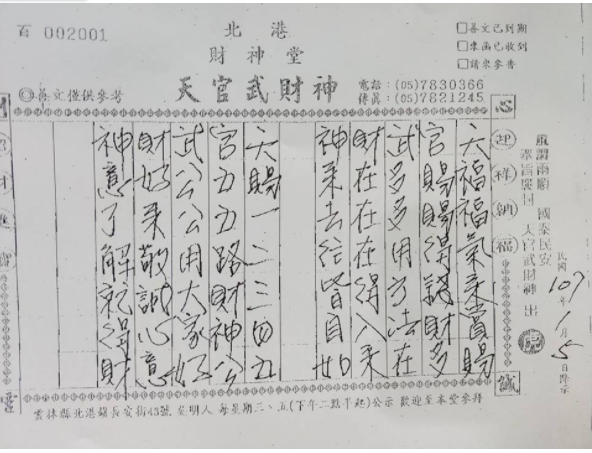 百 002001
北港
財神堂
天官武財神
電話：(05)7830366
傳真：(05)7821245
□善文已到期
□來函已收到
□請來參香
◎善文僅供參考
心
誠
迎祥納福
風調雨順 國泰民安
天官武財神 出
民國107年1月5日降示
天福福氣來賞賜
官賜賜得錢財多
武多多用方法在
財在在在得入來
神來去往皆自如
天賜一二三四五
官五五路財神公
武公公用大家好
財好來敬誠心意
神意了解就得財
招財進寶
雲林縣北港鎮長安街43號 呈明人 每星期三、五(下午二點半起)公示 歡迎至本堂參拜